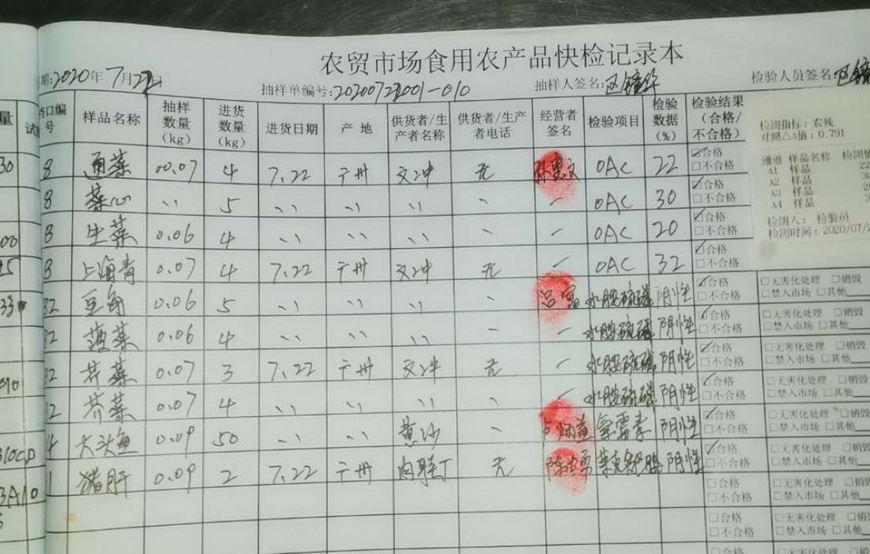 农贸市场食用农产品快检记录本
期:2020年7月22
抽样单编号:20200722001-010 抽样人签名: 检验人员签名:
档口编号 样品名称 抽样数量(kg) 进货数量(kg) 进货日期 产地 供货者/生产者名称 供货者/生产者电话 经营者签名 检验项目 检验数据(%) 检验结果(合格/不合格)
8 通菜 00.07 4 7.22 广州 无 OAC 22 ☑合格 □不合格
8 菜心 〃 5 〃 〃 〃 OAC 30 ☑合格 □不合格
8 生菜 0.06 4 〃 〃 〃 OAC 20 ☑合格 □不合格
8 上海青 0.07 4 7.22 广州 无 OAC 32 ☑合格 □不合格
32 豆角 0.06 5 〃 〃 〃 水胺硫磷 阴性 ☑合格 □不合格 □无害化处理 □销毁 □禁入市场 □其他
32 0.06 4 〃 〃 〃 水胺硫磷 阴性 ☑合格 □不合格 □无害化处理 □销毁 □禁入市场 □其他
32 芥菜 0.07 3 7.22 广州 无 水胺硫磷 阴性 ☑合格 □不合格 □无害化处理 □销毁 □禁入市场 □其他
32 芥菜 0.07 4 〃 〃 〃 水胺硫磷 阴性 ☑合格 □不合格 □无害化处理 □销毁 □禁入市场 □其他
4 大头鱼 0.09 50 〃 〃 黄沙 氯霉素 阴性 ☑合格 □不合格 □无害化处理 □销毁 □禁入市场 □其他
1 猪肝 0.09 2 7.22 广州 肉联厂 无 阴性 ☑合格 □不合格 □无害化处理 □销毁 □禁入市场 □其他
□合格 □不合格 □无害化处理 □销毁 □禁入市场 □其他
□合格 □不合格 □无害化处理 □销毁 □禁入市场 □其他
□合格
检测指标:农残
对照△A值:0.791
通道 样品名称
A1 样品
A2 样品
A3 样品
A4 样品
检测人: 检验员
检测时间:2020/07/2